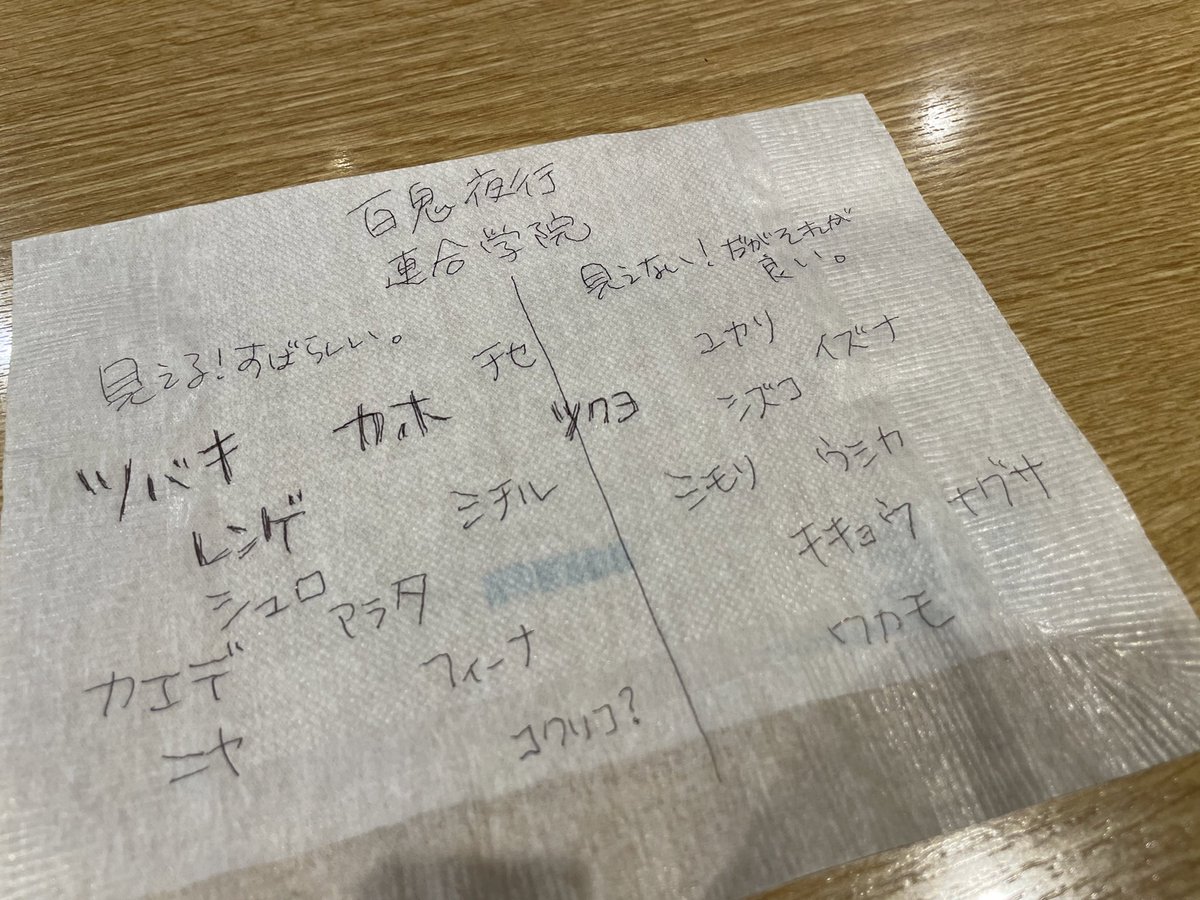 百鬼夜行
連合学院
見える!すばらしい。
チセ
ツバキ カホ
レンゲ ミチル
シュロ アラタ
カエデ フィーナ
ニヤ コクリコ?
ツクヨ
見えない!だがそれが
良い。
ユカリ イズナ
シズコ
ミモリ ウミカ
キキョウ ナグサ
ワカモ